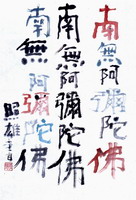 南無阿彌陀佛
南無阿彌陀佛
南無阿彌陀佛